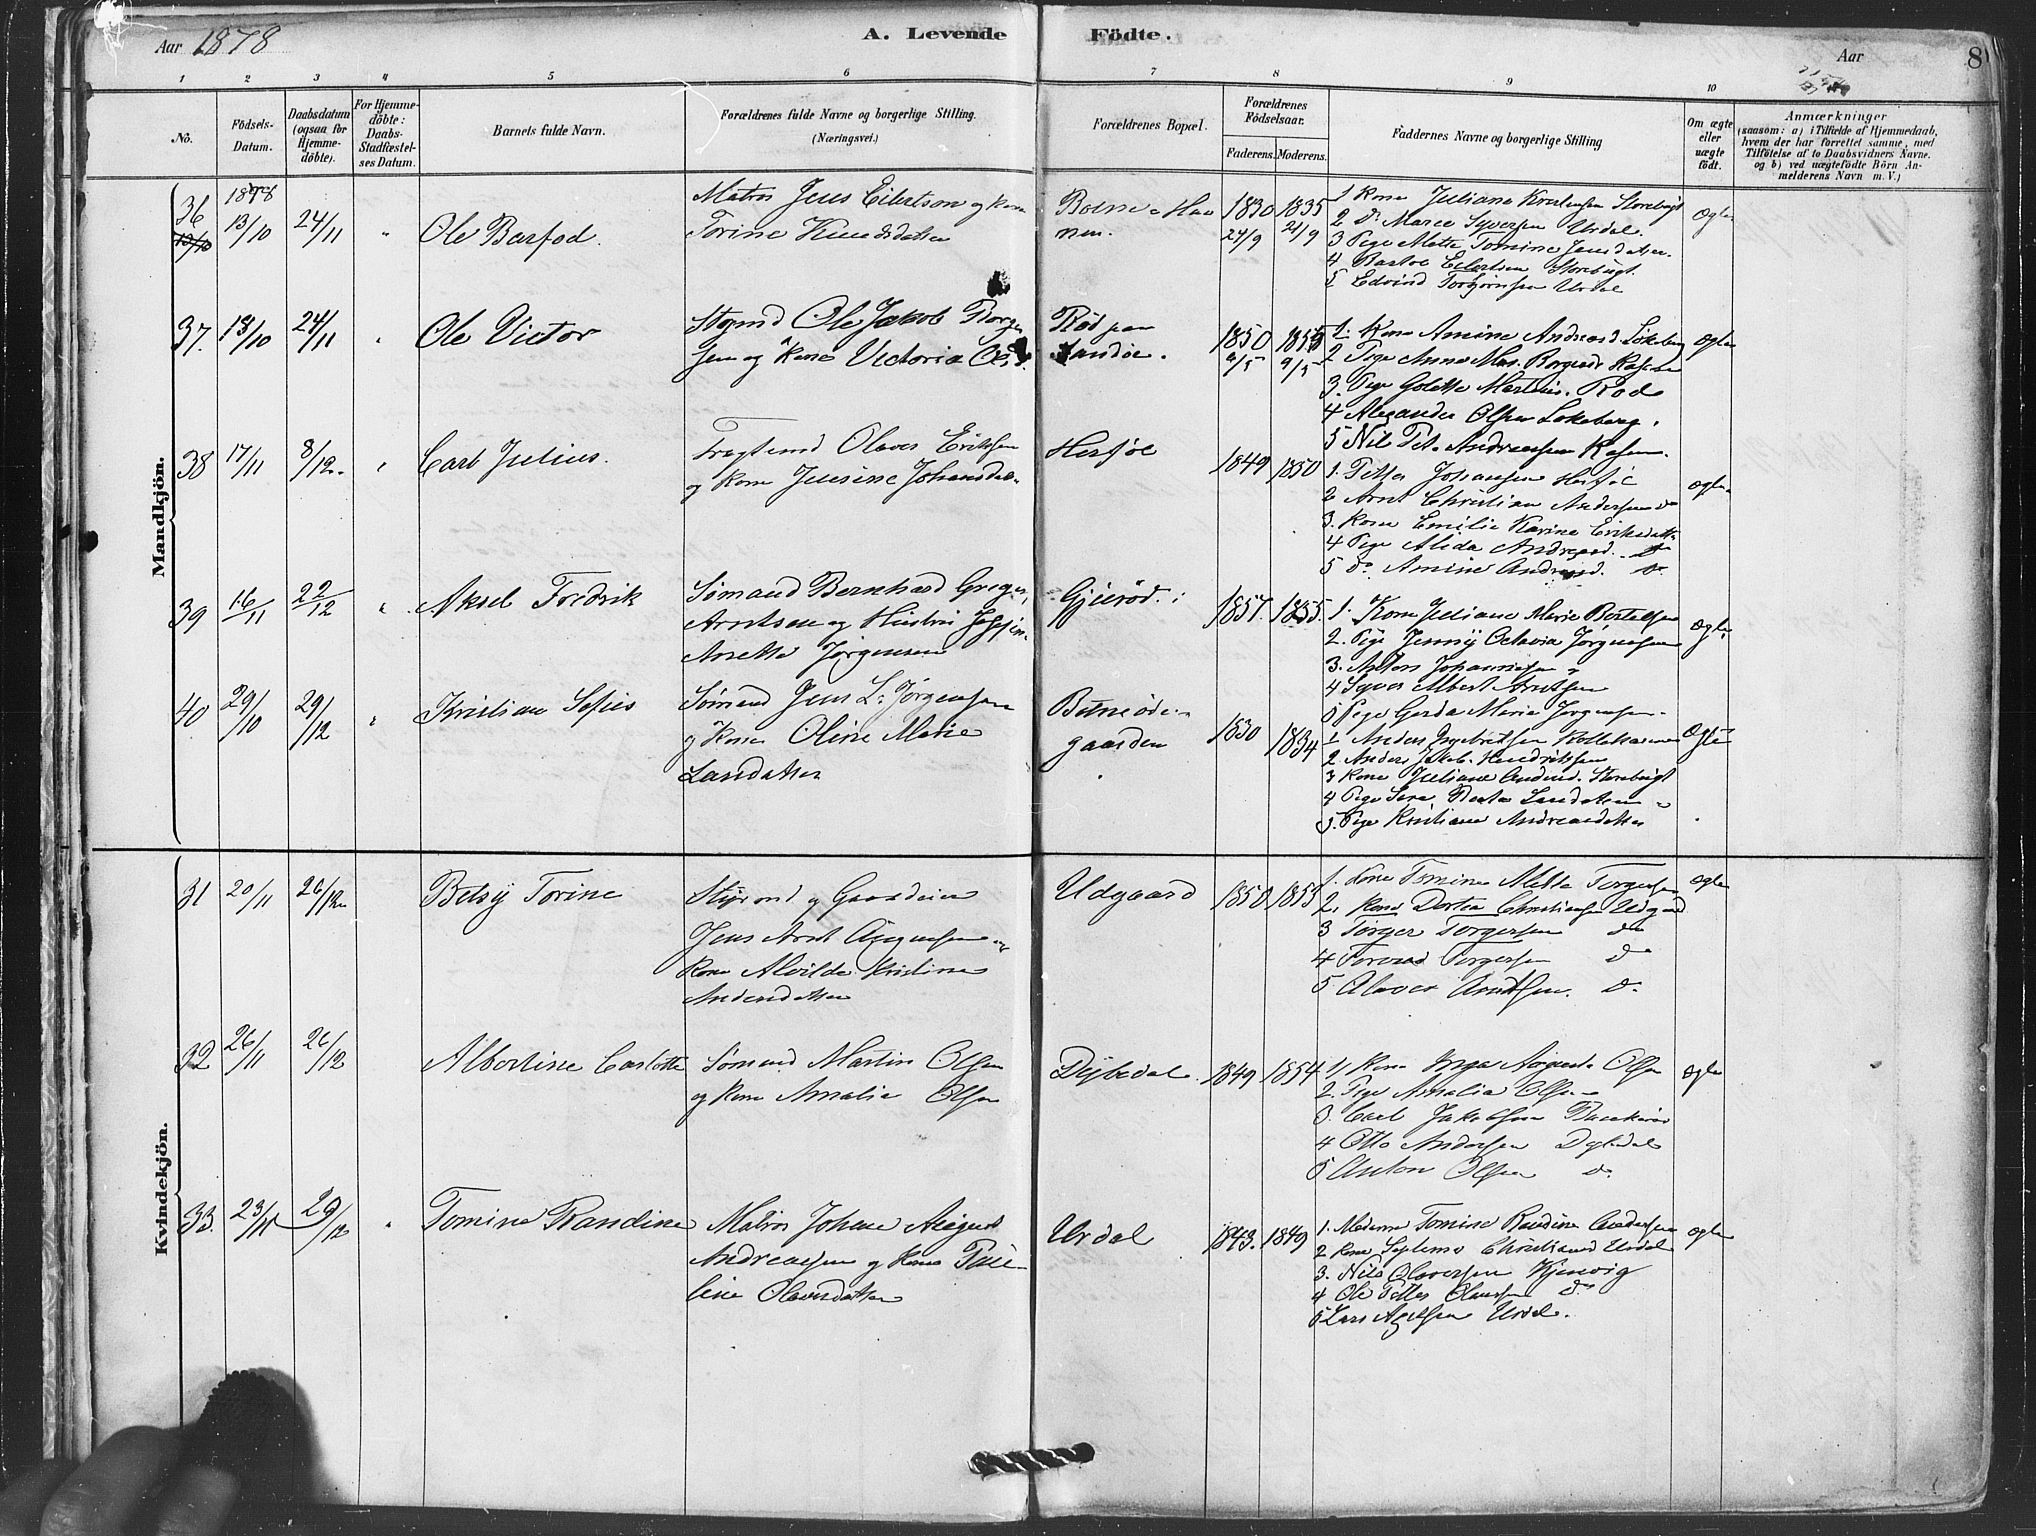 Aar 1878
A. Levende Födte.
Aar
8
1 2 3 4 5 6 7 8 9 10
No.
Födsels-Datum.
Daabsdatum (ogsaa for Hjemme-döbte).
For Hjemme-döbte: Daabs-Stadfæstel-ses Datum.
Barnets fulde Navn.
Forældrenes fulde Navne og borgerlige Stilling.
(Næringsvei.)
Forældrenes Bopæl.
Forældrenes Födselsaar.
Faderens. Moderens.
Faddernes Navne og borgerlige Stilling
Om ægte eller uægte födt.
Anmærkninger
(saasom: a) i Tilfælde af Hjemmedaab,
hvem der har forrettet samme, med
Tilföielse af to Daabsvidners Navne.
og b) ved uægtefödte Börn An-
melderens Navn m. V.)
Mandkjön.
1878
36 13/10 24/11 " Ole Barfod.
Matros Jens Eilertsen og Kone
Torine Knudsdatter
1830 1835
24/9 21/9
1 Kone Juliane Kristensen Storebugt
2 Do Maree Syversen Urdal.
3 Pige Mette Tomine Jensdatter.
4 Bartol Eilertsen Storebugt.
5 Edvind Torgjørnsen Urdal
Ægte
37. 13/10 24/11 " Ole Victor
Styrmd Ole Jakob Borge
sen og Kone Victoria
Rød paa
Sandøe.
1850 1855
9/5 9/5
1. Kone Amine Andreasd. Løkeberg
2 Pige Anne Mar. Borgesd.
3. Pige Golette Martins. Rød
4 Alexander Olsen Løkeberg.
5 Nils Pet. Andreassen
Ægte
38 17/11 8/12. " Carl Julius.
Fragtemd Olaves Eriksen
og Kone Josine Johansdat.
Herføl
1849 1850
1. Petter Johansen Herføl
2 Arnt Christian Andersen do
3. Kone Emilie Karine Eriksdatt.
4 Pige Alida Andreasd. do
5 do. Amine Andreasd. do.
Ægte
39 16/11 22/12 " Aksel Fredrik
Sømand Bernhard Greger
Arntsen og Hustru
Anette Jørgensen
Gjerød.
1857. 1855.
1. Kone Juliane Marie Bertelsen
2. Pige Jenny Octavia Jørgensen
3. Anton Johannesen
4 Syver Albert Arntsen
5 Pige Gerda Maria Jørgensen.
Ægte
40. 29/10 29/12 " Kristian Sofus
Sømand Jens L. Jørgensen
og Kone Oline Marie
Larsdatter
gaarden
1830 1834
1. Anders Ingebretsen
2. Anders Jakob. Hendriksen
3 Kone Juliane Andersd. Storebugt
4 Pige Sara Beate Larsdatter
5. Pige Kristiane Andreasdatter
Ægte
Kvindekjön.
31 20/11 26/12 Betsy Torine
Styrmd og Gaardeier
Jens Arnt Augustsen og
Kone Alvilde Kristine
Andersdatter
Udgaard
1850 1853
1. Kone Tomine Mette Torgersen
2. Kone Dortea Christiansen Udgaard
3 Torger Torgersen do
4 Torvad Torgersen do
5 Olaves Arntsen. do.
Ægte
32 26/11 26/12 Albertine Carlotte
Sømand Martin Olsen
og Kone Amalie Olsen
Dybedal
1849 1854
1) Kone Inga Augusta Olsen
2. Pige Amalia Olsen
3. Carl Jakobsen
4 Otto Andersen Dybedal
5 Anton Olsen do
Ægte
33. 23/11 29/12 " Tomine Randine
Matros Johan August
Andreassen og Kone Pau-
line Olavesdatter
Urdal
1843. 1849
1. Madame Tomine Randine Andersen
2 Kone Septemo Christiansd Urdal
3. Nils Olavesen Kjenvig
4 Ole Petter Olavesen do
5 Lars Axelsen Urdal.
Ægte